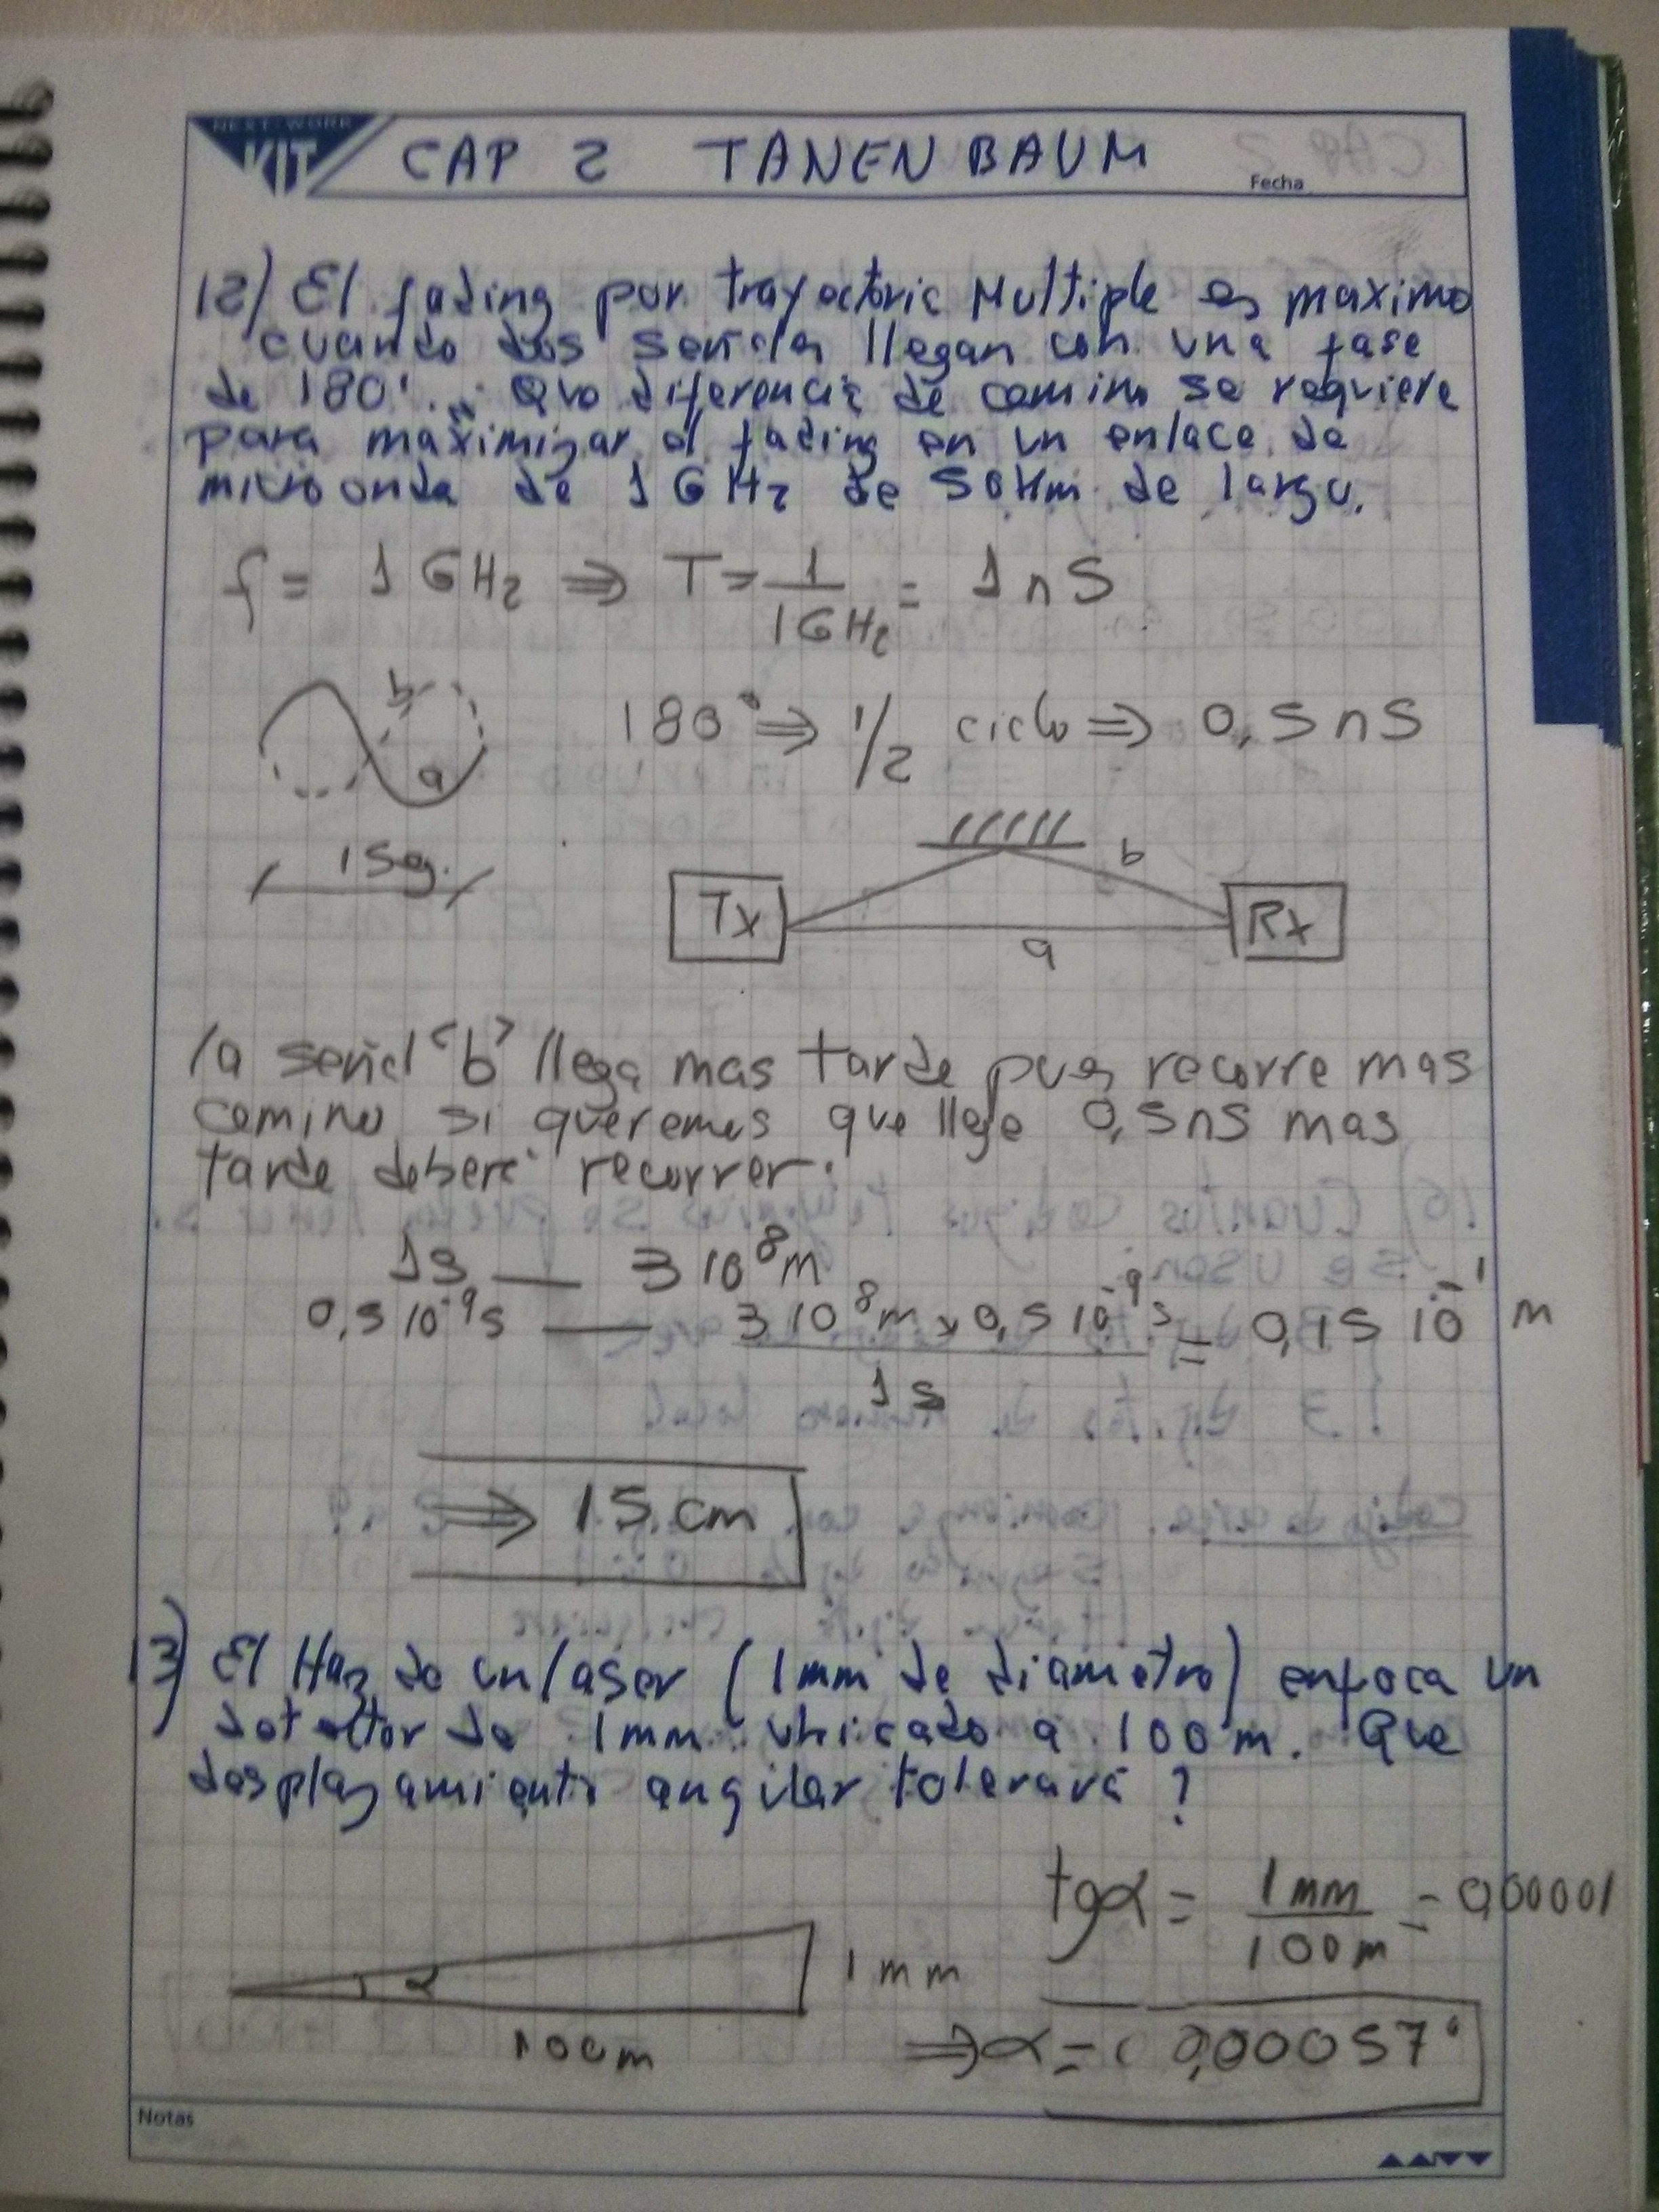 NEXT WORK
KIT
CAP 2 TANENBAUM
Fecha
12) El fading por trayectoric Multiple es maximo
cuando dos señcles llegan con una fase
de 180°. Que diferencia de camino se requiere
para maximizar el fading en un enlace de
micro onda de 1 GHz de 50 Km de largo.
f = 1 GHz ⇒ T = 1/1GHz = 1 nS
b
a
180° ⇒ 1/2 ciclo ⇒ 0,5 nS
1 Seg.
Tx
b
a
Rx
la señcl "b" llega mas tarde pues recorre mas
camino si queremos que llege 0,5nS mas
tarde deberé recorrer:
1s — 3 10^8 m
0,5 10^-9 s — 3 10^8 m x 0,5 10^-9 s / 1 s = 0,15 10^-1 m
⇒ 15 cm
13) El Haz de un laser (1mm de diametro) enfoca un
detector de 1mm ubicado a 100 m. Que
desplazamiento angular tolerará ?
tgα = 1 mm / 100 m = 0,00001
α
1 mm
100m
⇒ α = 0,00057°
Notas